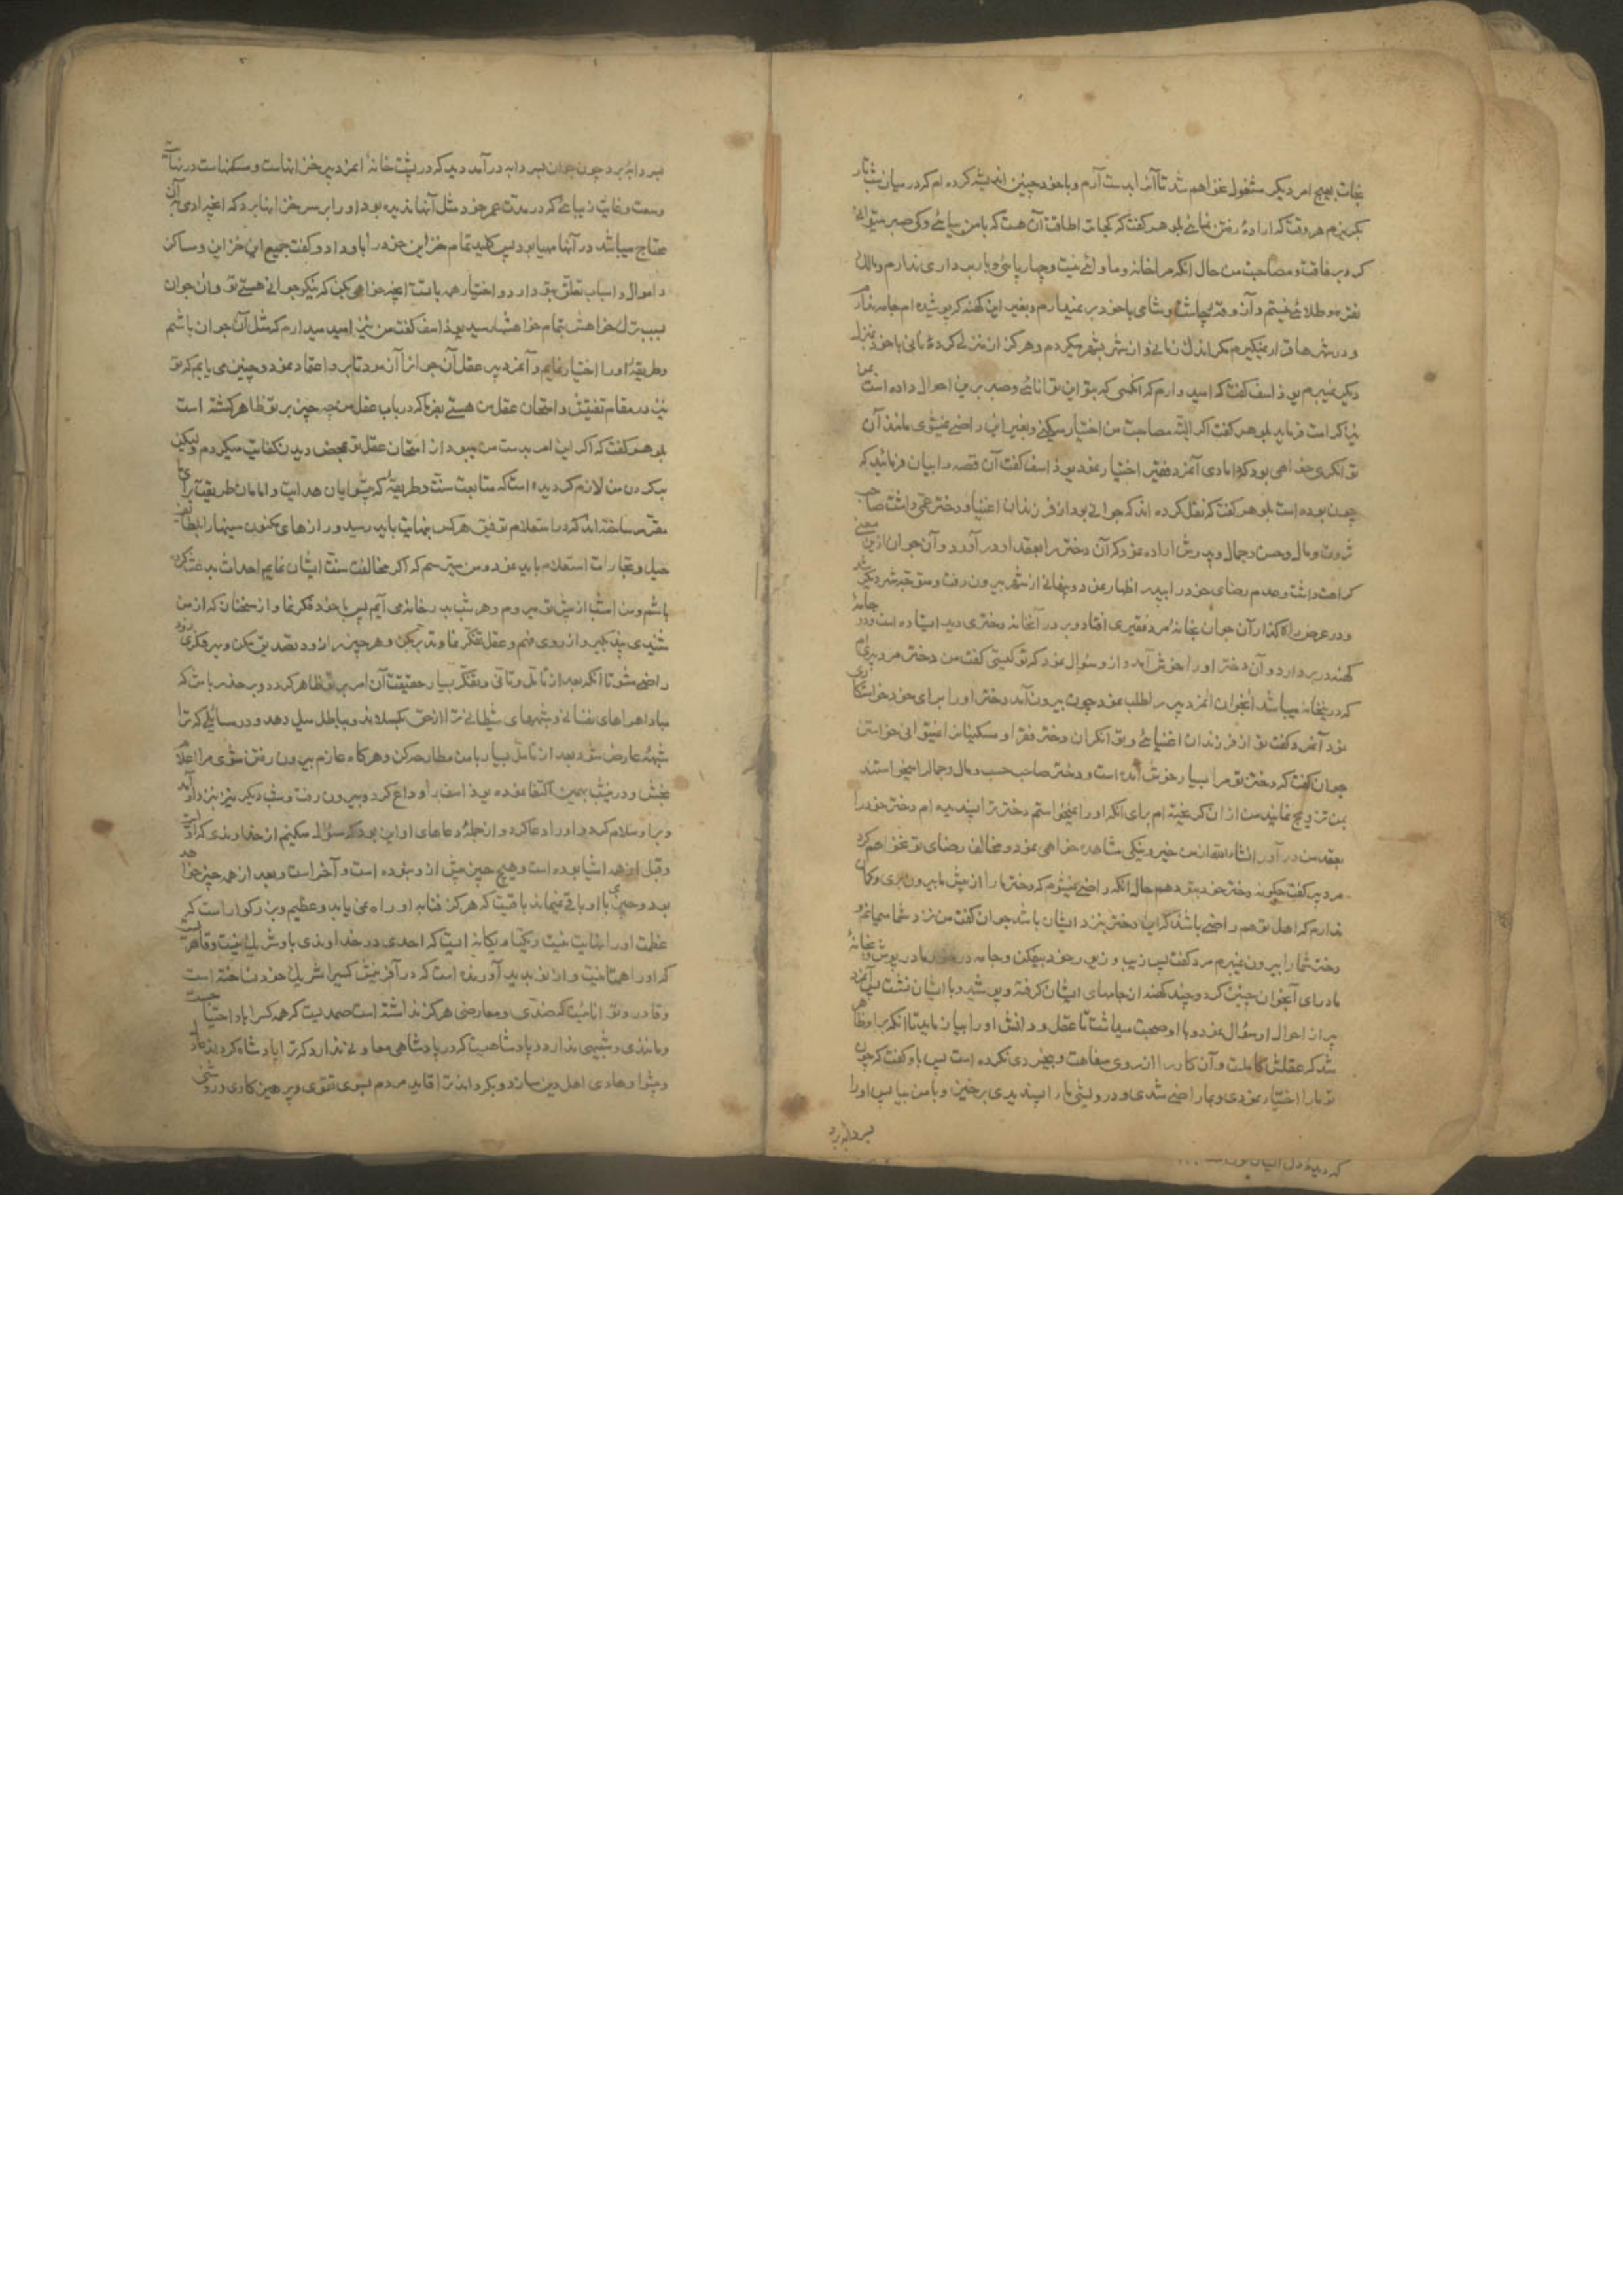 نجات بهیچ امر دیگر مشغول نخواهم شد تا آنرا بدست آرم و با خود چنین اندیشه کرده ام که در میان شب تار
بگریزم هر وقت که ارادهٔ رفتن نمائی بلوهر گفت که کجا ترا طاقت آن هست که با من بیائی و کی صبر میتوانی
کرد بر رفاقت و مصاحبت من حال آنکه مرا خانه و ماوائی نیست و چهارپائی و باربرداری ندارم و مالک
نقره و طلائی نیستم و آذوقهٔ چاشت و شامی با خود بر نمیدارم و بغیر این کهنه که پوشیده ام جامه ندارم
و در شهرها قرار نمیگیرم مگر اندک زمانی و از شهر بشهر میگردم و هرگز از منزلی گردهٔ نانی با خود بمنزل
دیگر نمیبرم یوذاسف گفت که امید دارم که آنکسی که بتو این توانائی و صبر بر این احوال داده است بما
نیز کرامت فرماید بلوهر گفت اگر البته مصاحبت من اختیار میکنی و بغیر این راضی نمیشوی مانند آن
توانگری خواهی بود که دامادی آنمرد فقیر اختیار نمود یوذاسف گفت آن قصه را بیان فرمائید که
چون بوده است بلوهر گفت که نقل کرده اند که جوانی بود از فرزندان اغنیا و دختر عمی داشت صاحب
ثروت و مال و حسن و جمال و پدرش اراده نمود که آن دختر را بعقد او در آورد و آن جوان ازین معنی
کراهت داشت و عدم رضای خود را بپدر اظهار ننمود و پنهانی از شهر بیرون رفت و متوجه شهر دیگر شد
و در عرض راه گذار آن جوان بخانهٔ مرد فقیری افتاد و بر در آنخانه دختری دید ایستاده است و جامهٔ
کهنه در بر دارد و آن دختر او را خوش آمد و ازو سؤال نمود که تو کیستی گفت من دختر مرد پیری ام
که درینخانه میباشد آنجوان آنمرد پیر را طلب نمود چون بیرون آمد دختر او را برای خود خواستگاری
نمود آنمرد گفت تو از فرزندان اغنیائی و توانگران دختر فقرا و مسکینان را نمیتوانی خواستن
جوان گفت که دختر تو مرا بسیار خوش آمده است و دختر صاحب حسب و مال و جمال را میخواستند
بمن تزویج نمایند من از آن گریخته ام برای آنکه او را نمیخواستم دختر ترا پسندیده ام دختر خود را
بعقد من در آور انشاء الله از من خیر و نیکی مشاهده خواهی نمود و مخالف رضای تو نخواهم کرد
مرد پیر گفت چگونه دختر خود بتو دهم حال آنکه راضی نمیشوم که دختر ما را از پیش ما بیرون بری و گمان
ندارم که اهل تو هم راضی باشند که این دختر بنزد ایشان باشد جوان گفت من نزد شما میمانم و
دختر شما را بیرون نمیبرم مرد گفت پس زیب و زیور خود بیفکن و جامه در خور ما در پوش و بخانهٔ
ما در آی آنجوان چنین کرد و چند کهنه از جامهای ایشان گرفته و پوشید و با ایشان نشست پس آنمرد
پیر از احوال او سؤال نمود و با او صحبت میداشت تا عقل و دانش او را بیازماید تا آنکه بر او ظاهر
شد که عقلش کاملست و آن کار را از روی سفاهت و بیخردی نکرده است پس باو گفت که چون
تو ما را اختیار نمودی و بما راضی شدی و درویشی ما را پسندیدی برخیز و با من بیا پس او را
بسردابه برد
بسردابه برد چون جوان بسردابه در آمد دید که در پشت خانهٔ آنمرد پیر خزانهاست و مسکنهاست در نهایت
وسعت و غایت زیبائی که در مدت عمر خود مثل آنها ندیده بود او را بر سر خزانها برد که آنچه آدمی بآن
محتاج میباشد در آنها مهیا بود پس کلید تمام خزاین خود را باو داد و گفت جمیع این خزاین و مساکن
و اموال و اسباب تعلق بتو دارد و اختیار همه با تست آنچه خواهی بکن که نیکو جوانی هستی تو و آن جوان
بسبب ترک خواهش بتمام خواهشها رسید یوذاسف گفت من نیز امید میدارم که مثل آن جوان باشم
و طریقهٔ او را اختیار نمایم و آنمرد پیر عقل آن جوانرا آزمود تا برو اعتماد نمود و چنین می یابم که تو
نیز در مقام تفتیش و امتحان عقل من هستی بفرما که در باب عقل من چه چیز بر تو ظاهر گشته است
بلوهر گفت که اگر این امر بدست من میبود از امتحان عقل تو بمحض دیدن کفایت میکردم و لیکن
بر گردن من لازم گردیده است که متابعت سنت و طریقهٔ که پیشوایان هدایت و امامان طریقت برای ما
مقرر ساخته اند که در استعلام توفیق هر کس بنهایت باید رسید و رازهای مکنون سینها را بلطایف
حیل و تجارب استعلام باید نمود و من میترسم که اگر مخالفت سنت ایشان نمایم احداث بدعتی کرده
باشم و من امشب از پیش تو میروم و هر شب بدر خانه می آیم پس با خود فکر نما و از سخنان که از من
شنیدی پند بگیر و از روی فهم و عقل تفکر نما و تدبر بکن و هر چیز را زود تصدیق مکن و بهر فکری زود
راضی مشو تا آنکه بعد از تامل و تانی و تفکر بسیار حقیقت آن امر بر تو ظاهر گردد و بر حذر باش که
مبادا هواهای نفسانی و شبههای شیطانی ترا از حق بگسلاند و بباطل میل دهد و در مسائلی که ترا
شبههٔ عارض شود بعد از تامل بسیار با من مطارحه کن و هر گاه عازم بیرون رفتن شوی مرا اعلام
بخش و در نشب بهمین اکتفا نموده یوذاسف را وداع کرد و بیرون رفت و شب دیگر نیز بنزد او آمد
و برو سلام کرد و او را دعا کرد و از جملهٔ دعاهای او این بود که سؤال میکنم از خداوندی که اولست
و قبل از همه اشیا بوده است و هیچ چیز پیش ازو نبوده است و آخر است و بعد از همه چیز خواهد
بود و چیزی با او باقی نمیماند باقیست که هرگز فنا به او راه نمی یابد و عظیم و بزرگواریست که
عظمت او را نهایت نیست و یکتا و یگانه ایست که احدی در خداوندی با او شریک نیست و قاهریست
که او را همتا نیست و از نو پدید آورنده است که در آفرینش کسیرا شریک خود نساخته است
و قادر و توانائیست که ضدی و معارضی هرگز نداشته است صمدیست که همه کس را باو احتیاجست
و مانندی و شبیهی ندارد و پادشاهیست که در پادشاهی معاونی ندارد که ترا پادشاه گرداند عادل
و پیشوا و هادی اهل دین سازد و بگرداند ترا قاید مردم بسوی تقوی و پرهیزکاری و روشنی